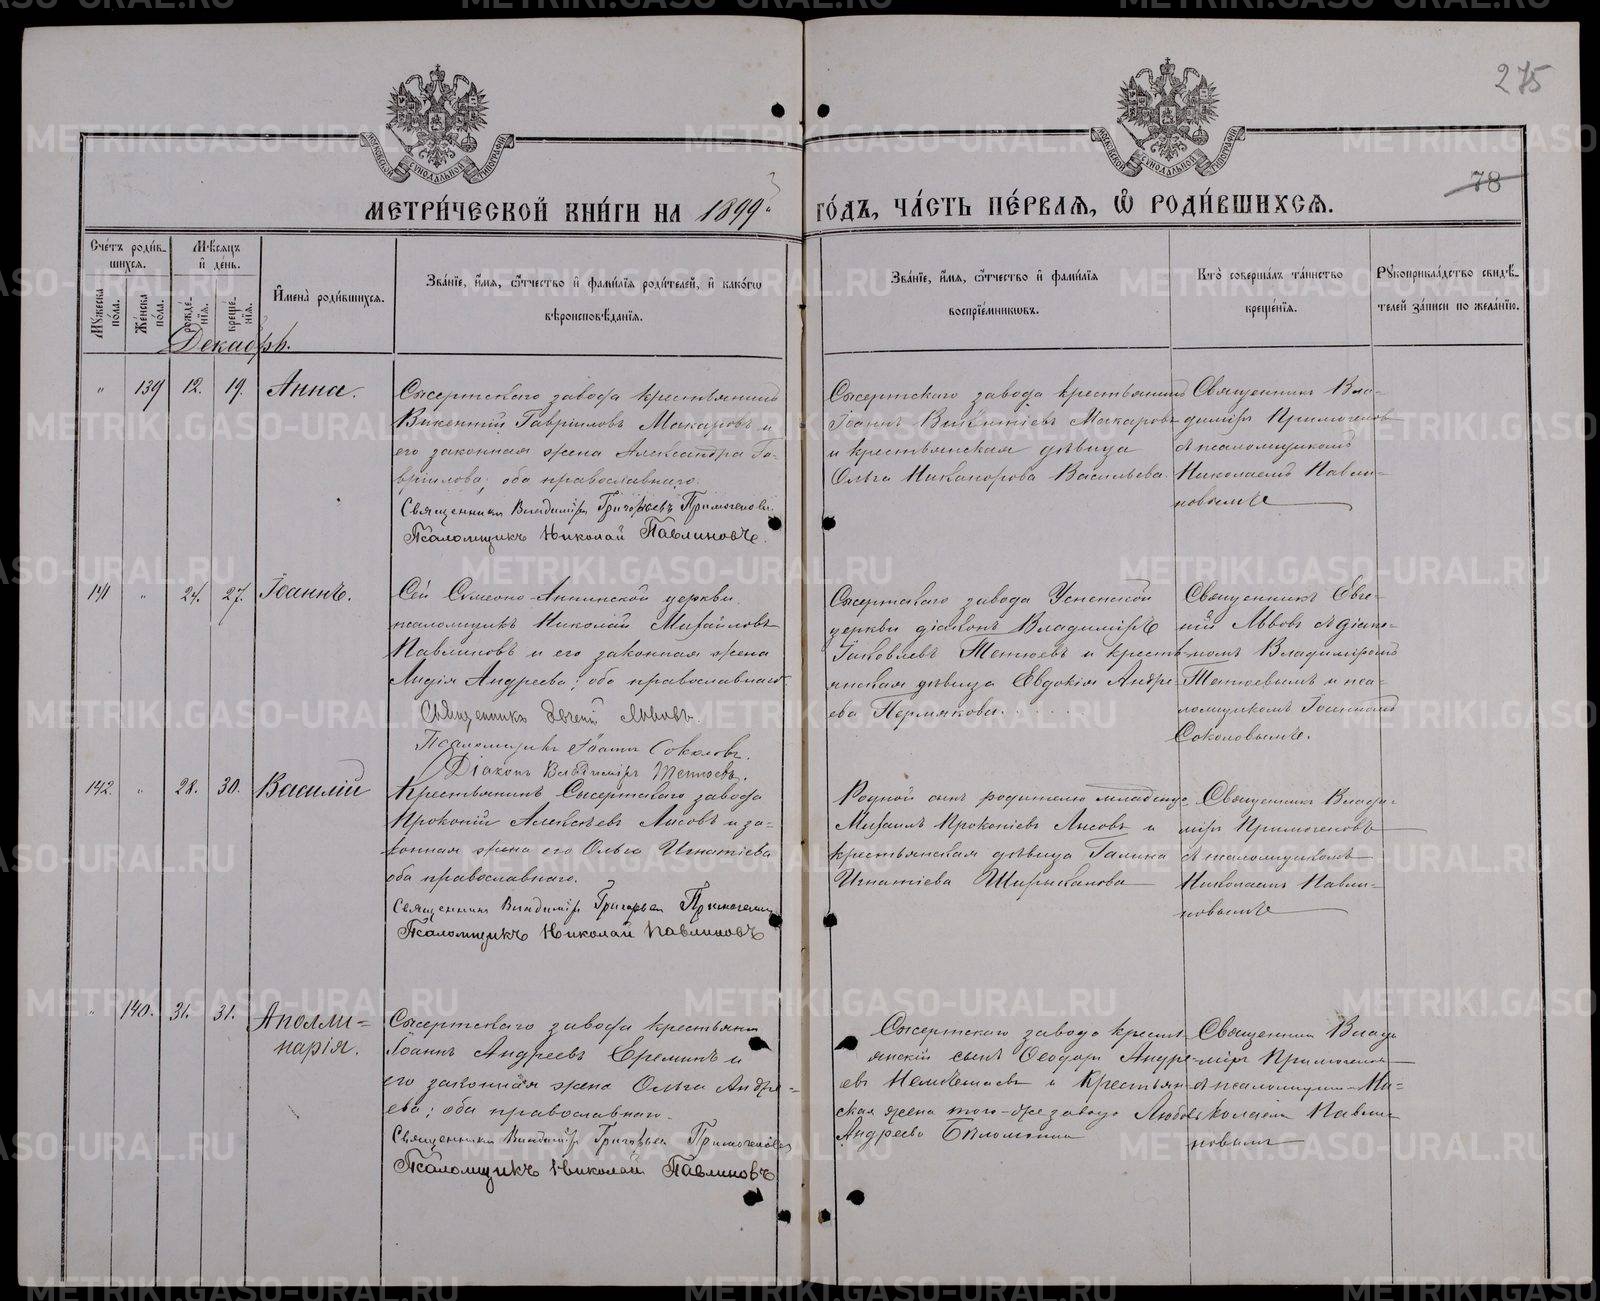 275
78
МОСКОВСКОЙ СѴНОДАЛЬНОЙ ТИПОГРАФІИ
МОСКОВСКОЙ СѴНОДАЛЬНОЙ ТИПОГРАФІИ
МЕТРИ́ЧЕСКОЙ КНИ́ГИ НА 1899 ГО́ДЪ, ЧА́СТЬ ПЕ́РВАЯ, Ѡ РОДИ́ВШИХСѦ.
Сче́тъ роди́вшихся.
Мѣ́сяцъ и де́нь.
Му́жеска по́ла.
Же́нска по́ла.
рожде́нїя.
креще́нїя.
Имена̀ роди́вшихся.
Зва́нїе, и́мя, ѻ́тчество и фами́лїя роди́телей, и како́гѡ вѣроисповѣ́данїя.
Зва́нїе, и́мя, ѻ́тчество и фами́лїя воспрїе́мникѡвъ.
Кто̀ соверша́лъ та́инство креще́нїя.
Рꙋкоприкла́дство свидѣ́телей за́писи по жела́нїю.
Декабрь.
" 139 12. 19. Анна.
Сысертскаго завода крестьянинъ
Викентий Гавриловъ Макаровъ и
его законная жена Александра Га-
врилова; оба православнаго.
Священникъ Владиміръ Григорьевъ Примогеновъ.
Псаломщикъ Николай Павлиновъ.
Сысертскаго завода крестьянинъ
Іоаннъ Викентіевъ Макаровъ
и крестьянская дѣвица
Ольга Никанорова Васильева.
Священникъ Вла-
диміръ Примогеновъ
съ псаломщикомъ
Николаемъ Павли-
новымъ
141 " 24. 27. Іоаннъ.
Сей Симеоно-Аннинской церкви
псаломщикъ Николай Михайловъ
Павлиновъ и его законная жена
Лидія Андреева; оба православнаго
Священникъ Евгеній Львовъ.
Псаломщикъ Іоаннъ Соколовъ.
Діаконъ Владиміръ Тетюевъ.
Сысертскаго завода Успенской
церкви діаконъ Владиміръ
Іаковлевъ Тетюевъ и кресть-
янская дѣвица Евдокія Андре-
ева Пермякова.
Священникъ Евге-
ній Львовъ съ діако-
номъ Владиміромъ
Тетюевымъ и пса-
ломщикомъ Іоанномъ
Соколовымъ.
142. " 28. 30. Василій
Крестьянинъ Сысертскаго завода
Прокопій Алексѣевъ Лисовъ и за-
конная жена его Ольга Игнатіева
оба православнаго.
Священникъ Владиміръ Григорьев Примогеновъ
Псаломщикъ Николай Павлиновъ
Родной сынъ родителю младенца
Михаилъ Прокопіевъ Лисовъ и
крестьянская дѣвица Галина
Игнатіева Ширыканова
Священникъ Влади-
міръ Примогеновъ
съ псаломщикомъ
Николаемъ Павли-
новымъ
" 140. 31. 31. Аполли-
нарія.
Сысертскаго завода крестьянинъ
Іоаннъ Андреевъ Ереминъ и
его законная жена Ольга Андре-
ева; оба православнаго.
Священникъ Владиміръ Григорьев Примогеновъ
Псаломщикъ Николай Павлиновъ
Сысертскаго завода кресть-
янскій сынъ Ѳеодоръ Андре-
евъ и крестьян-
ская жена того-же завода Любовь
Андреева
Священникъ Влади-
міръ Примогеновъ
съ псаломщикомъ Ни-
колаемъ Павли-
новымъ
METRIKI.GASO-URAL.RU